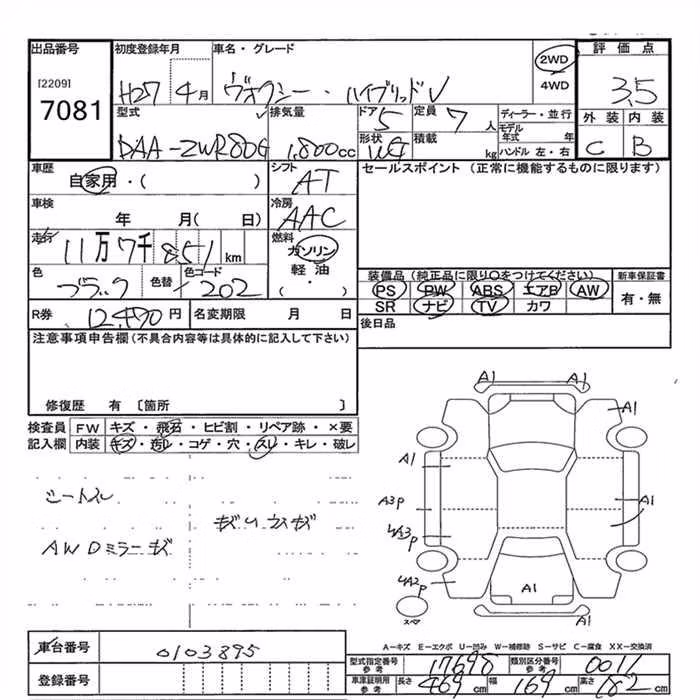 出品番号 初度登録年月 車名・グレード 2WD 評価点
[2209] H27 4月 ヴォクシー・ハイブリッドV 4WD 3.5
7081 型式 排気量 ドア 5 定員 7人 ディーラー・並行 外装 内装
DAA-ZWR80G 1,800cc 形状 WG 積載 kg モデル年式 年 ハンドル 左・右 C B
車歴 自家用・( ) シフト AT セールスポイント (正常に機能するものに限ります)
車検 年 月( 日) 冷房 AAC
走行 11万7千851km 燃料 ガソリン
色 ブラック 色替 色コード 202 軽油 装備品(純正品に限り○をつけてください) 新車保証書
・( ) PS PW ABS エアB AW 有・無
R券 12,490円 名変期限 月 日 SR ナビ TV カワ
注意事項申告欄(不具合内容等は具体的に記入して下さい) 後日品
修復歴 有 〔箇所 〕
検査員 FW キズ・飛石・ヒビ割・リペア跡・×要
記入欄 内装 キズ・汚レ・コゲ・穴・スレ・キレ・破レ
A1 A1
A1
A1
シートスレ
A3P A1
キズ
AWDミラーキズ
P
UA2P
A1
スペア A1
A=キズ E=エクボ U=凹み W=補修跡 S=サビ C=腐食 XX=交換済
車台番号 0103895
型式指定番号 参考 17690 類別区分番号 参考 0011
登録番号 車庫証明用 参考 長さ 469cm 幅 169cm 高さ 182cm